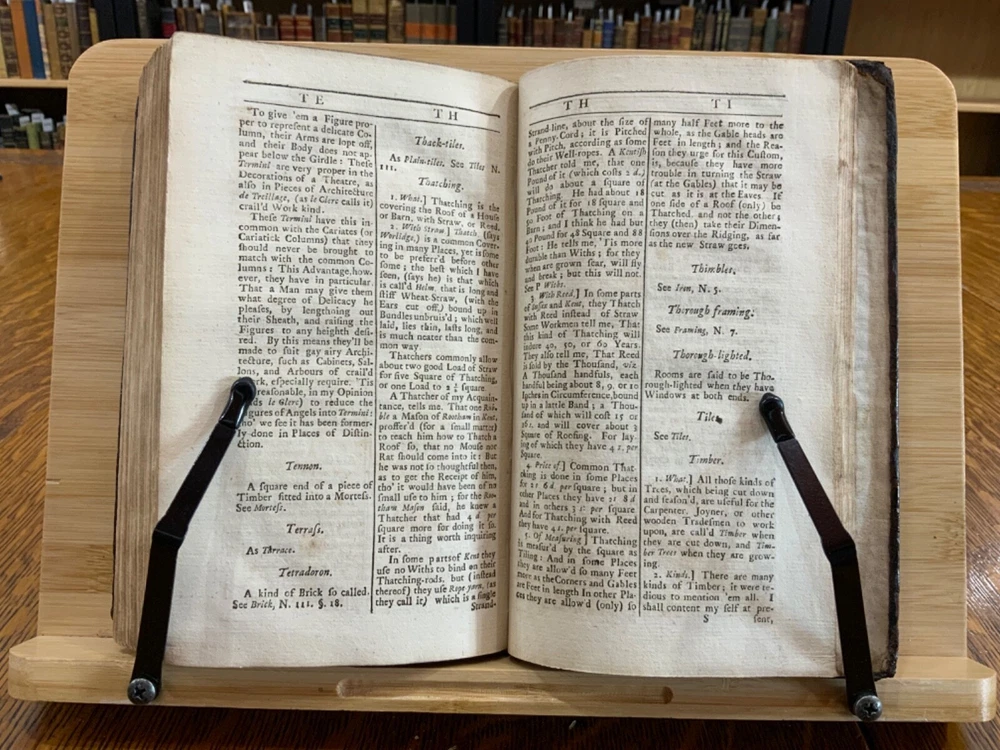 T E
T H
To give 'em a Figure pro-
per to represent a delicate Co-
lumn, their Arms are lopt off,
and their Body does not ap-
pear below the Girdle: These
Termini are very proper in the
Decorations of a Theatre, as
also in Pieces of Architecture
de Treillage, (as le Clerc calls it)
crail'd Work kind.
These Termini have this in-
common with the Cariates (or
Cariatick Columns) that they
should never be brought to
match with the common Co-
lumns: This Advantage, how-
ever, they have in particular.
That a Man may give them
what degree of Delicacy he
pleases, by lengthning out
their Sheath, and raising the
Figures to any heighth desi-
red. By this means they'll be
made to suit gay airy Archi-
tecture, such as Cabinets, Sal-
lons, and Arbours of crail'd
especially require. 'Tis
reasonable, in my Opinion
le Clerc) to reduce the
gures of Angels into Termini:
tho' we see it has been former-
ly done in Places of Distin-
ction.
Tennon.
A square end of a piece of
Timber fitted into a Mortess.
See Mortess.
Terrass.
As Tarrace.
Tetradoron.
A kind of Brick so called.
See Brick, N. 111. §. 18.
Thack-tiles.
As Plain-tiles. See Tiles N.
111.
Thatching.
1. What.] Thatching is the
covering the Roof of a House
or Barn, with Straw, or Reed.
2. With Straw] Thatch (says
Worlidge,) is a common Cover-
ing in many Places, yet is some
to be preferr'd before other
some; the best which I have
seen, (says he) is that which
is call'd Helm, that is long and
stiff Wheat Straw, (with the
Ears cut off,) bound up in
Bundles unbruis'd; which well
laid, lies thin, lasts long, and
is much neater than the com-
mon way.
Thatchers commonly allow
about two good Load of Straw
for five Square of Thatching,
or one Load to 2 ½ square.
A Thatcher of my Acquain-
tance, tells me. That one
ble a Mason of Rootham in Kent,
proffer'd (for a small matter)
to teach him how to Thatch a
Roof so, that no Mouse nor
Rat should come into it: But
he was not so thoughtful then,
as to get the Receipt of him,
tho' it would have been of no
small use to him; for the Roo-
tham Mason said, he knew a
Thatcher that had 4 d. per
square more for doing it so.
It is a thing worth inquiring
after.
In some parts of Kent they
use no Withs to bind on their
Thatching-rods. but (instead
thereof) they use Rope-yarn, (as
they call it) which is a single
Strand-
T H
T I
Strand-line, about the size of
a Penny. Cord; it is Pitched
with Pitch, according as some
do their Well-ropes. A Kentish
Thatcher told me, that one
Pound of it (which costs 2 d.)
will do about a square of
Thatching. He had about 18
Pound of it for 18 square and
50 Foot of Thatching on a
Barn; and I think he had but
40 Pound for 48 Square and 88
Foot: He tells me, 'Tis more
durable than Withs; for they
when are grown sear, will fly
and break; but this will not.
See P Withs.
3. With Reed.] In some parts
of Sussex and Kent, they Thatch
with Reed instead of Straw
Some Workmen tell me, That
this kind of Thatching will
indure 40, 50, or 60 Years.
They also tell me, That Reed
is sold by the Thousand, viz.
A Thousand handfuls, each
handful being about 8, 9, or 10
Inches in Circumference, bound
up in a little Band; a Thou-
sand of which will cost 15 or
16 s. and will cover about 3
Square of Roofing. For lay-
ing of which they have 4 s. per
Square.
4. Price of] Common That-
ching is done in some Places
for 2 s. 6 d. per square; but in
other Places they have 2 s 8 d
and in others 3 s. per square
And for Thatching with Reed
they have 4 s. per square.
5. Of Measuring] Thatching
is measur'd by the square as
Tiling: And in some Places
they are allow'd so many Feet
more at the Corners and Gables
are Feet in length In other Pla-
ces they are allow'd (only) so
many half Feet more to the
whole, as the Gable heads are
Feet in length; and the Rea-
son they urge for this Custom,
is, because they have more
trouble in turning the Straw
(at the Gables) that it may be
cut. as it is at the Eaves. If
one side of a Roof (only) be
Thatched. and not the other;
they (then) take their Dimen-
sions over the Ridging, as far
as the new Straw goes.
Thimbles.
See Iron, N. 5.
Thorough framing.
See Framing, N. 7.
Thorough-lighted.
Rooms are said to be Tho-
rough-lighted when they have
Windows at both ends.
Tile.
See Tiles.
Timber.
1. What.] All those kinds of
Trees, which being cut down
and season'd, are useful for the
Carpenter. Joyner, or other
wooden Tradesmen to work
upon, are call'd Timber when
they are cut down, and Tim-
ber Trees when they are grow-
ing.
2. Kinds.] There are many
kinds of Timber; it were te-
dious to mention 'em all. I
shall content my self at pre-
S
sent,